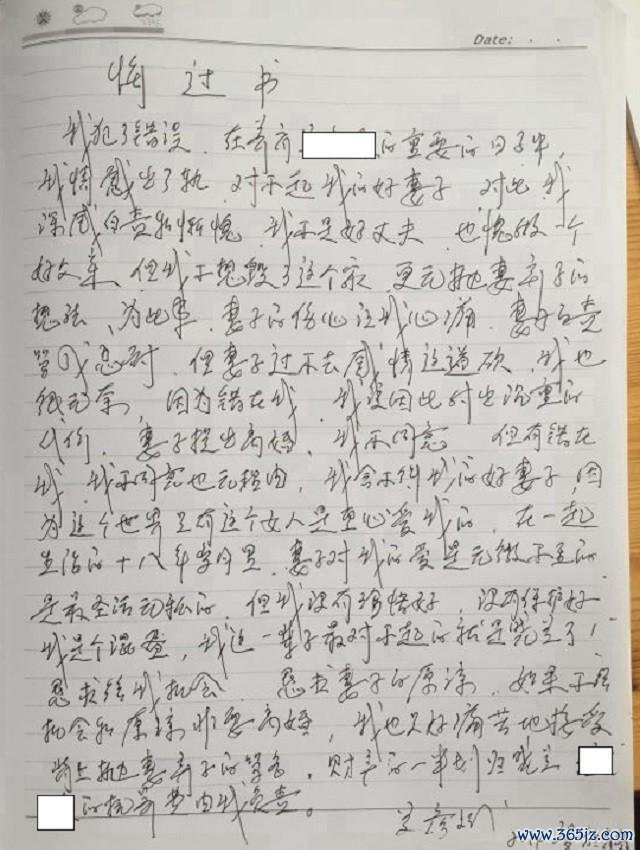 Date:
悔过书
我犯了错误,在养育的重要的日子里,
我情感出了轨,对不起我的好妻子,对此我
深感自责和惭愧,我不是好丈夫,也愧做一个
好父亲,但我不想毁了这个家,更无抛妻弃子的
想法,为此事,妻子的伤心让我心痛,妻子的责
骂我忍耐,但妻子过不去感情这道砍,我也
很无奈,因为错在我,我没因此付出沉重的
代价,妻子提出离婚,我不同意,但有错在
我,我不同意也无理由,我舍不得我的好妻子,因
为这个世界只有这个女人是真心爱我的,在一起
生活的十八年岁月里,妻子对我的爱是无微不至的
是最圣洁无私的,但我没有珍惜好,没有保护好
我是个混蛋,我这一辈子最对不起的就是
恳求给我机会,恳求妻子的原谅,如果不给
机会和原谅非要离婚,我也只好痛苦地接受
背上抛妻弃子的骂名,财产的一半划归
的抚养费由我负责。
www.365jz.com